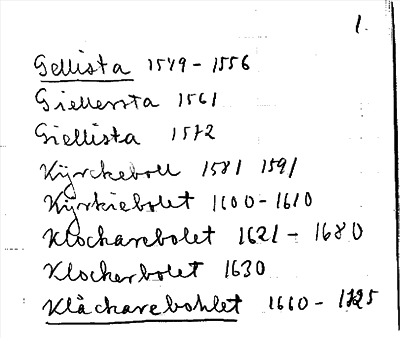 1.
Gellista 1549-1556
Giellersta 1561
Giellista 1572
Kÿrckeboll 1581 1591
Kÿrkiebolet 1600-1610
Klockarebolet 1621-1680
Klockerbolet 1630
Klåckarebohlet 1660-1725